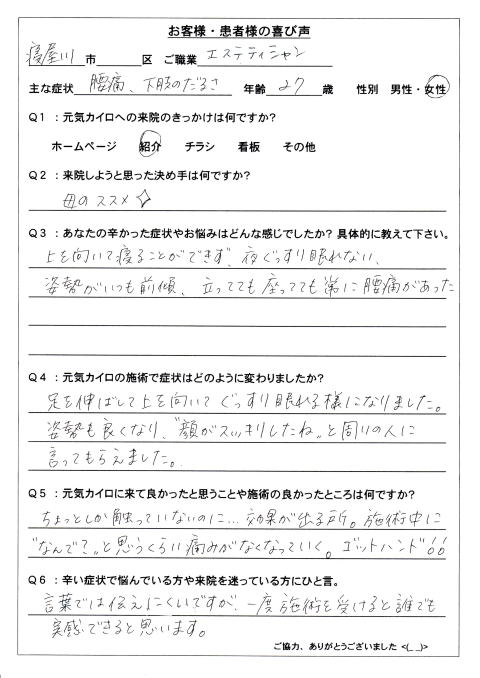 お客様・患者様の喜び声
寝屋川 市 区 ご職業 エステティシャン
主な症状 腰痛、下肢のだるさ 年齢 27 歳 性別 男性・女性
Q1 :元気カイロへの来院のきっかけは何ですか?
ホームページ 紹介 チラシ 看板 その他
Q2 :来院しようと思った決め手は何ですか?
母のススメ✧
Q3 :あなたの辛かった症状やお悩みはどんな感じでしたか? 具体的に教えて下さい。
上を向いて寝ることができず、夜ぐっすり眠れない、
姿勢がいつも前傾、立ってても座ってても常に腰痛があった
Q4 :元気カイロの施術で症状はどのように変わりましたか?
足を伸ばして上を向いてぐっすり眠れる様になりました。
姿勢も良くなり、"顔がスッキリしたね"と周りの人に
言ってもらえました。
Q5 :元気カイロに来て良かったと思うことや施術の良かったところは何ですか?
ちょっとしか触っていないのに…効果が出る所。施術中に
"なんで?"と思うくらい痛みがなくなっていく。ゴットハンド!!
Q6 :辛い症状で悩んでいる方や来院を迷っている方にひと言。
言葉では伝えにくいですが、一度施術を受けると誰でも
実感できると思います。
ご協力、ありがとうございました <(_ _)>